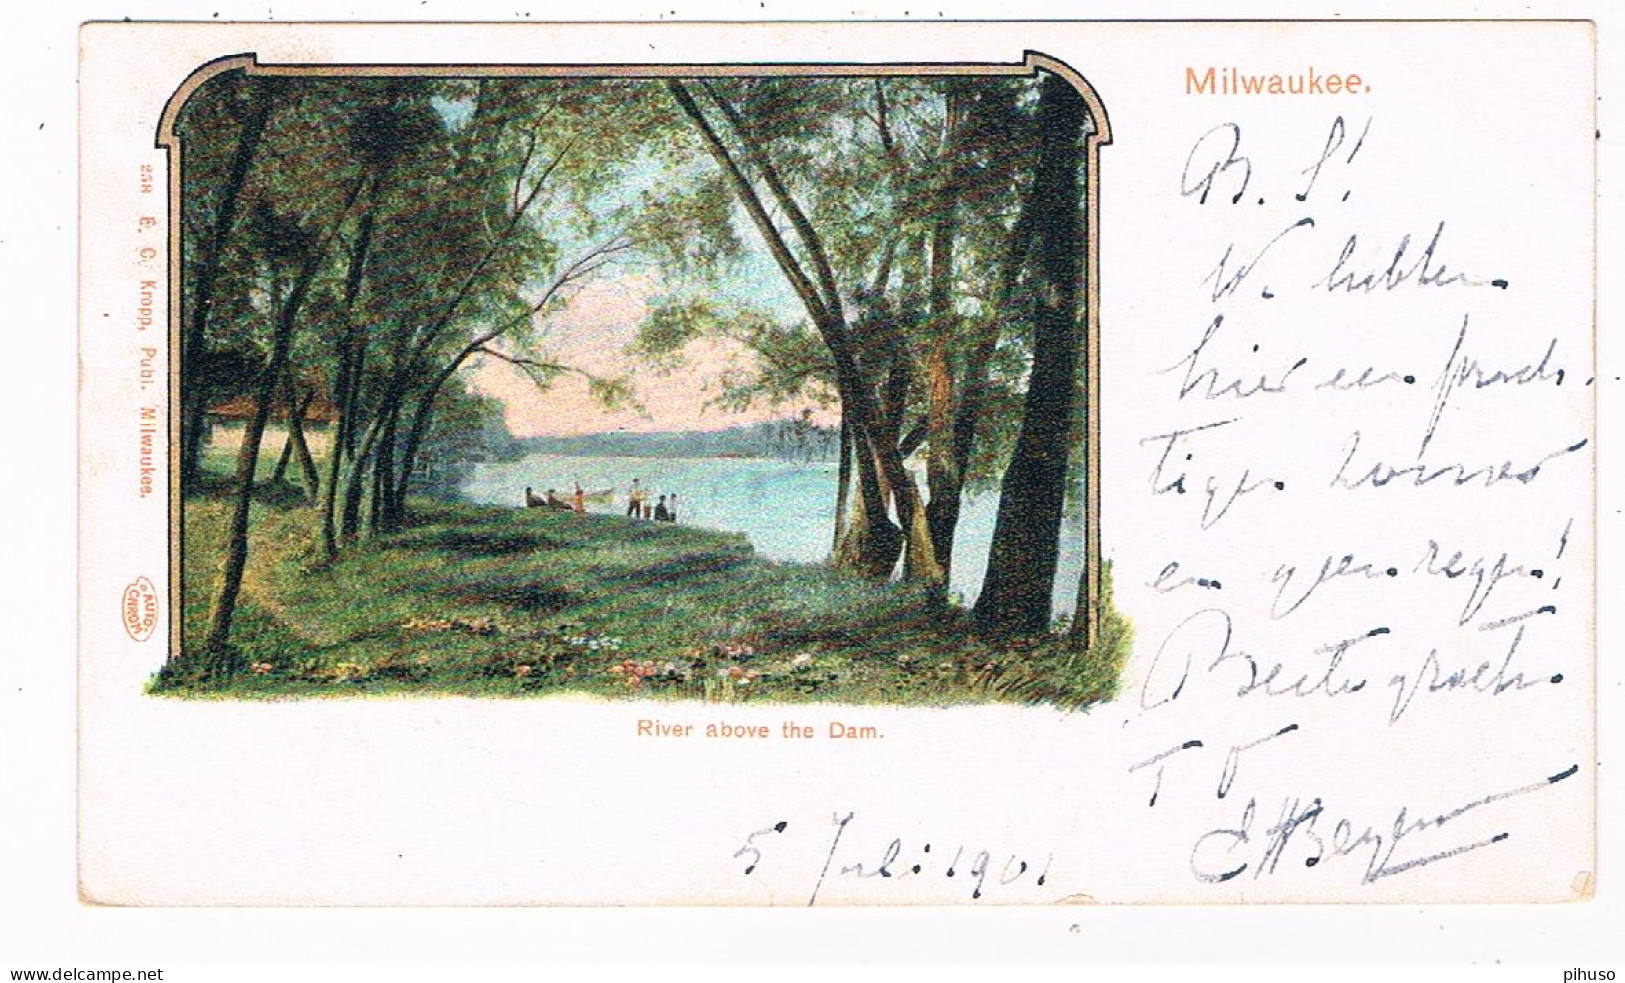 Milwaukee.
B. S!
W. hebben
hier een prach.
tigen zomer
en geen regen!
Beste groeten.
T V
E H Beyen
River above the Dam.
5 Juli 1901
258 E. C. Kropp, Publ. Milwaukee.
AUTO
CHROM
www.delcampe.net
pihuso